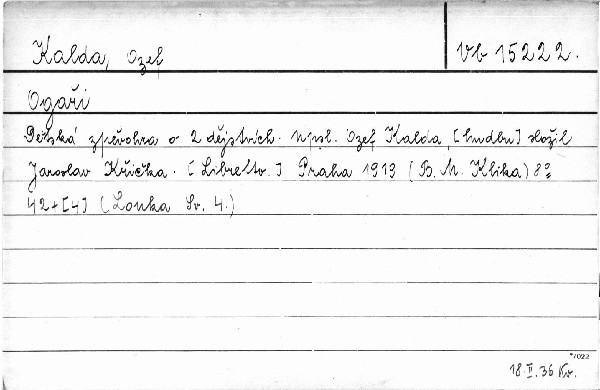 Kalda, Ozef
Vb 15222.
Ogaři
Dětská zpěvohra o 2 dějstvích. Naps. Ozef Kalda, [hudbu] složil
Jaroslav Křička. [Libretto.] Praha 1919 (B. M. Klika) 8°
42+[4] (Louka Sv. 4.)
*7022
18.II.36 Kr.